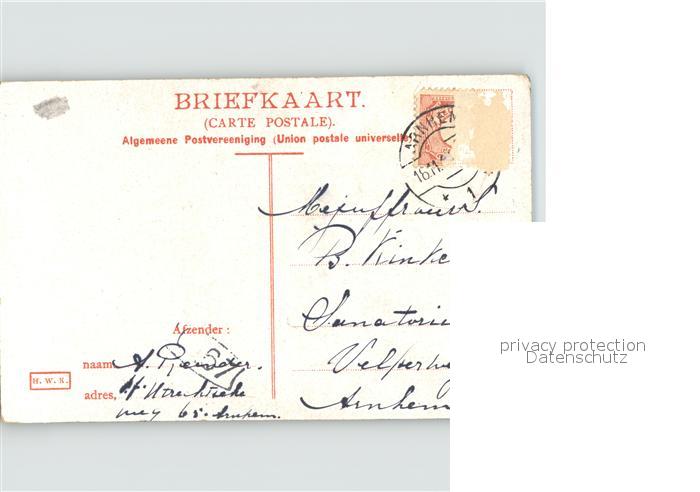 BRIEFKAART.
(CARTE POSTALE).
Algemeene Postvereeniging (Union postale universelle)
ARNHEM
16.11
* 1
Mejuffrouw
B. Kinke
Sanatori
Velperwe
Arnhem
Afzender:
naam A.
adres, Utrechtsche
weg 65. Arnhem.
H. W. K.
privacy protection
Datenschutz